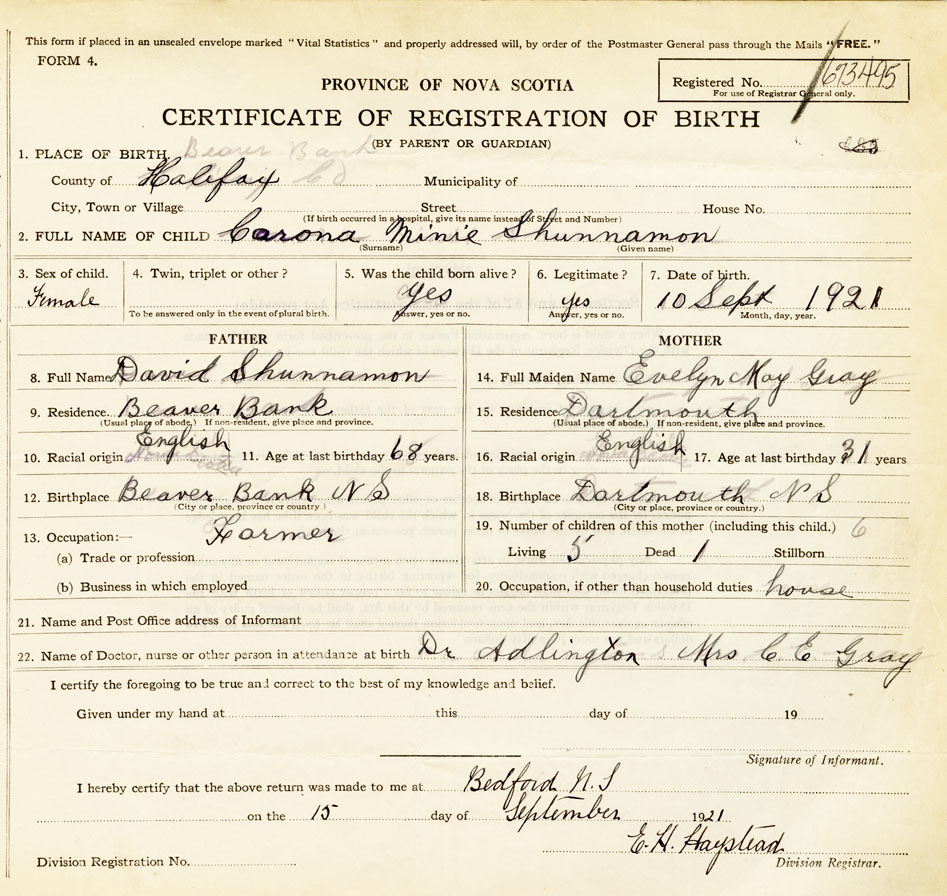 This form if placed in an unsealed envelope marked "Vital Statistics" and properly addressed will, by order of the Postmaster General pass through the Mails "FREE."
FORM 4.
Registered No. 673495
For use of Registrar General only.
PROVINCE OF NOVA SCOTIA
CERTIFICATE OF REGISTRATION OF BIRTH
(BY PARENT OR GUARDIAN)
1. PLACE OF BIRTH Beaver Bank
County of Halifax Co Municipality of
City, Town or Village Street House No.
(If birth occurred in a hospital, give its name instead of Street and Number)
2. FULL NAME OF CHILD Carona Minie Shunnamon
(Surname) (Given name)
3. Sex of child. 4. Twin, triplet or other? 5. Was the child born alive? 6. Legitimate? 7. Date of birth.
Female yes yes 10 Sept 1921
To be answered only in the event of plural birth. Answer, yes or no. Answer, yes or no. Month, day, year.
FATHER MOTHER
8. Full Name David Shunnamon 14. Full Maiden Name Evelyn May Gray
9. Residence. Beaver Bank 15. Residence Dartmouth
(Usual place of abode.) If non-resident, give place and province. (Usual place of abode.) If non-resident, give place and province.
10. Racial origin English 11. Age at last birthday 68 years. 16. Racial origin English 17. Age at last birthday 31 years
12. Birthplace Beaver Bank N S 18. Birthplace Dartmouth N S
(City or place, province or country.) (City or place, province or country.)
13. Occupation:— Farmer 19. Number of children of this mother (including this child.) 6
(a) Trade or profession Living 5 Dead 1 Stillborn
(b) Business in which employed 20. Occupation, if other than household duties house
21. Name and Post Office address of Informant
22. Name of Doctor, nurse or other person in attendance at birth Dr Adlington Mrs C E Gray
I certify the foregoing to be true and correct to the best of my knowledge and belief.
Given under my hand at this day of 19
Signature of Informant.
I hereby certify that the above return was made to me at Bedford N.S
on the 15 day of September 1921
E. H. Haystead
Division Registration No. Division Registrar.